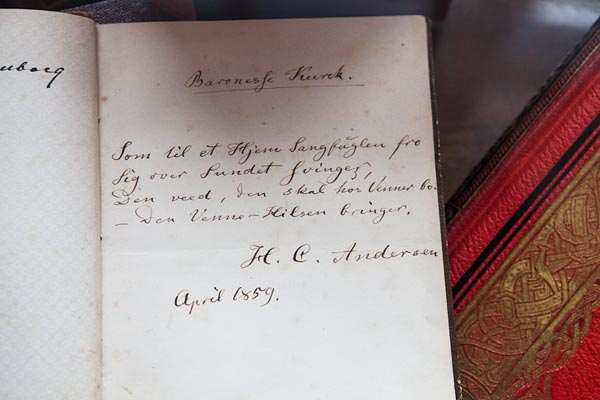 Baronesse Kurck.
Som til et Hjem Sangfuglen fro
Sig over Sundet svinger,
Den veed, den skal hos Venner bo.
– Den Venne-Hilsen bringer.
H. C. Andersen
April 1859.